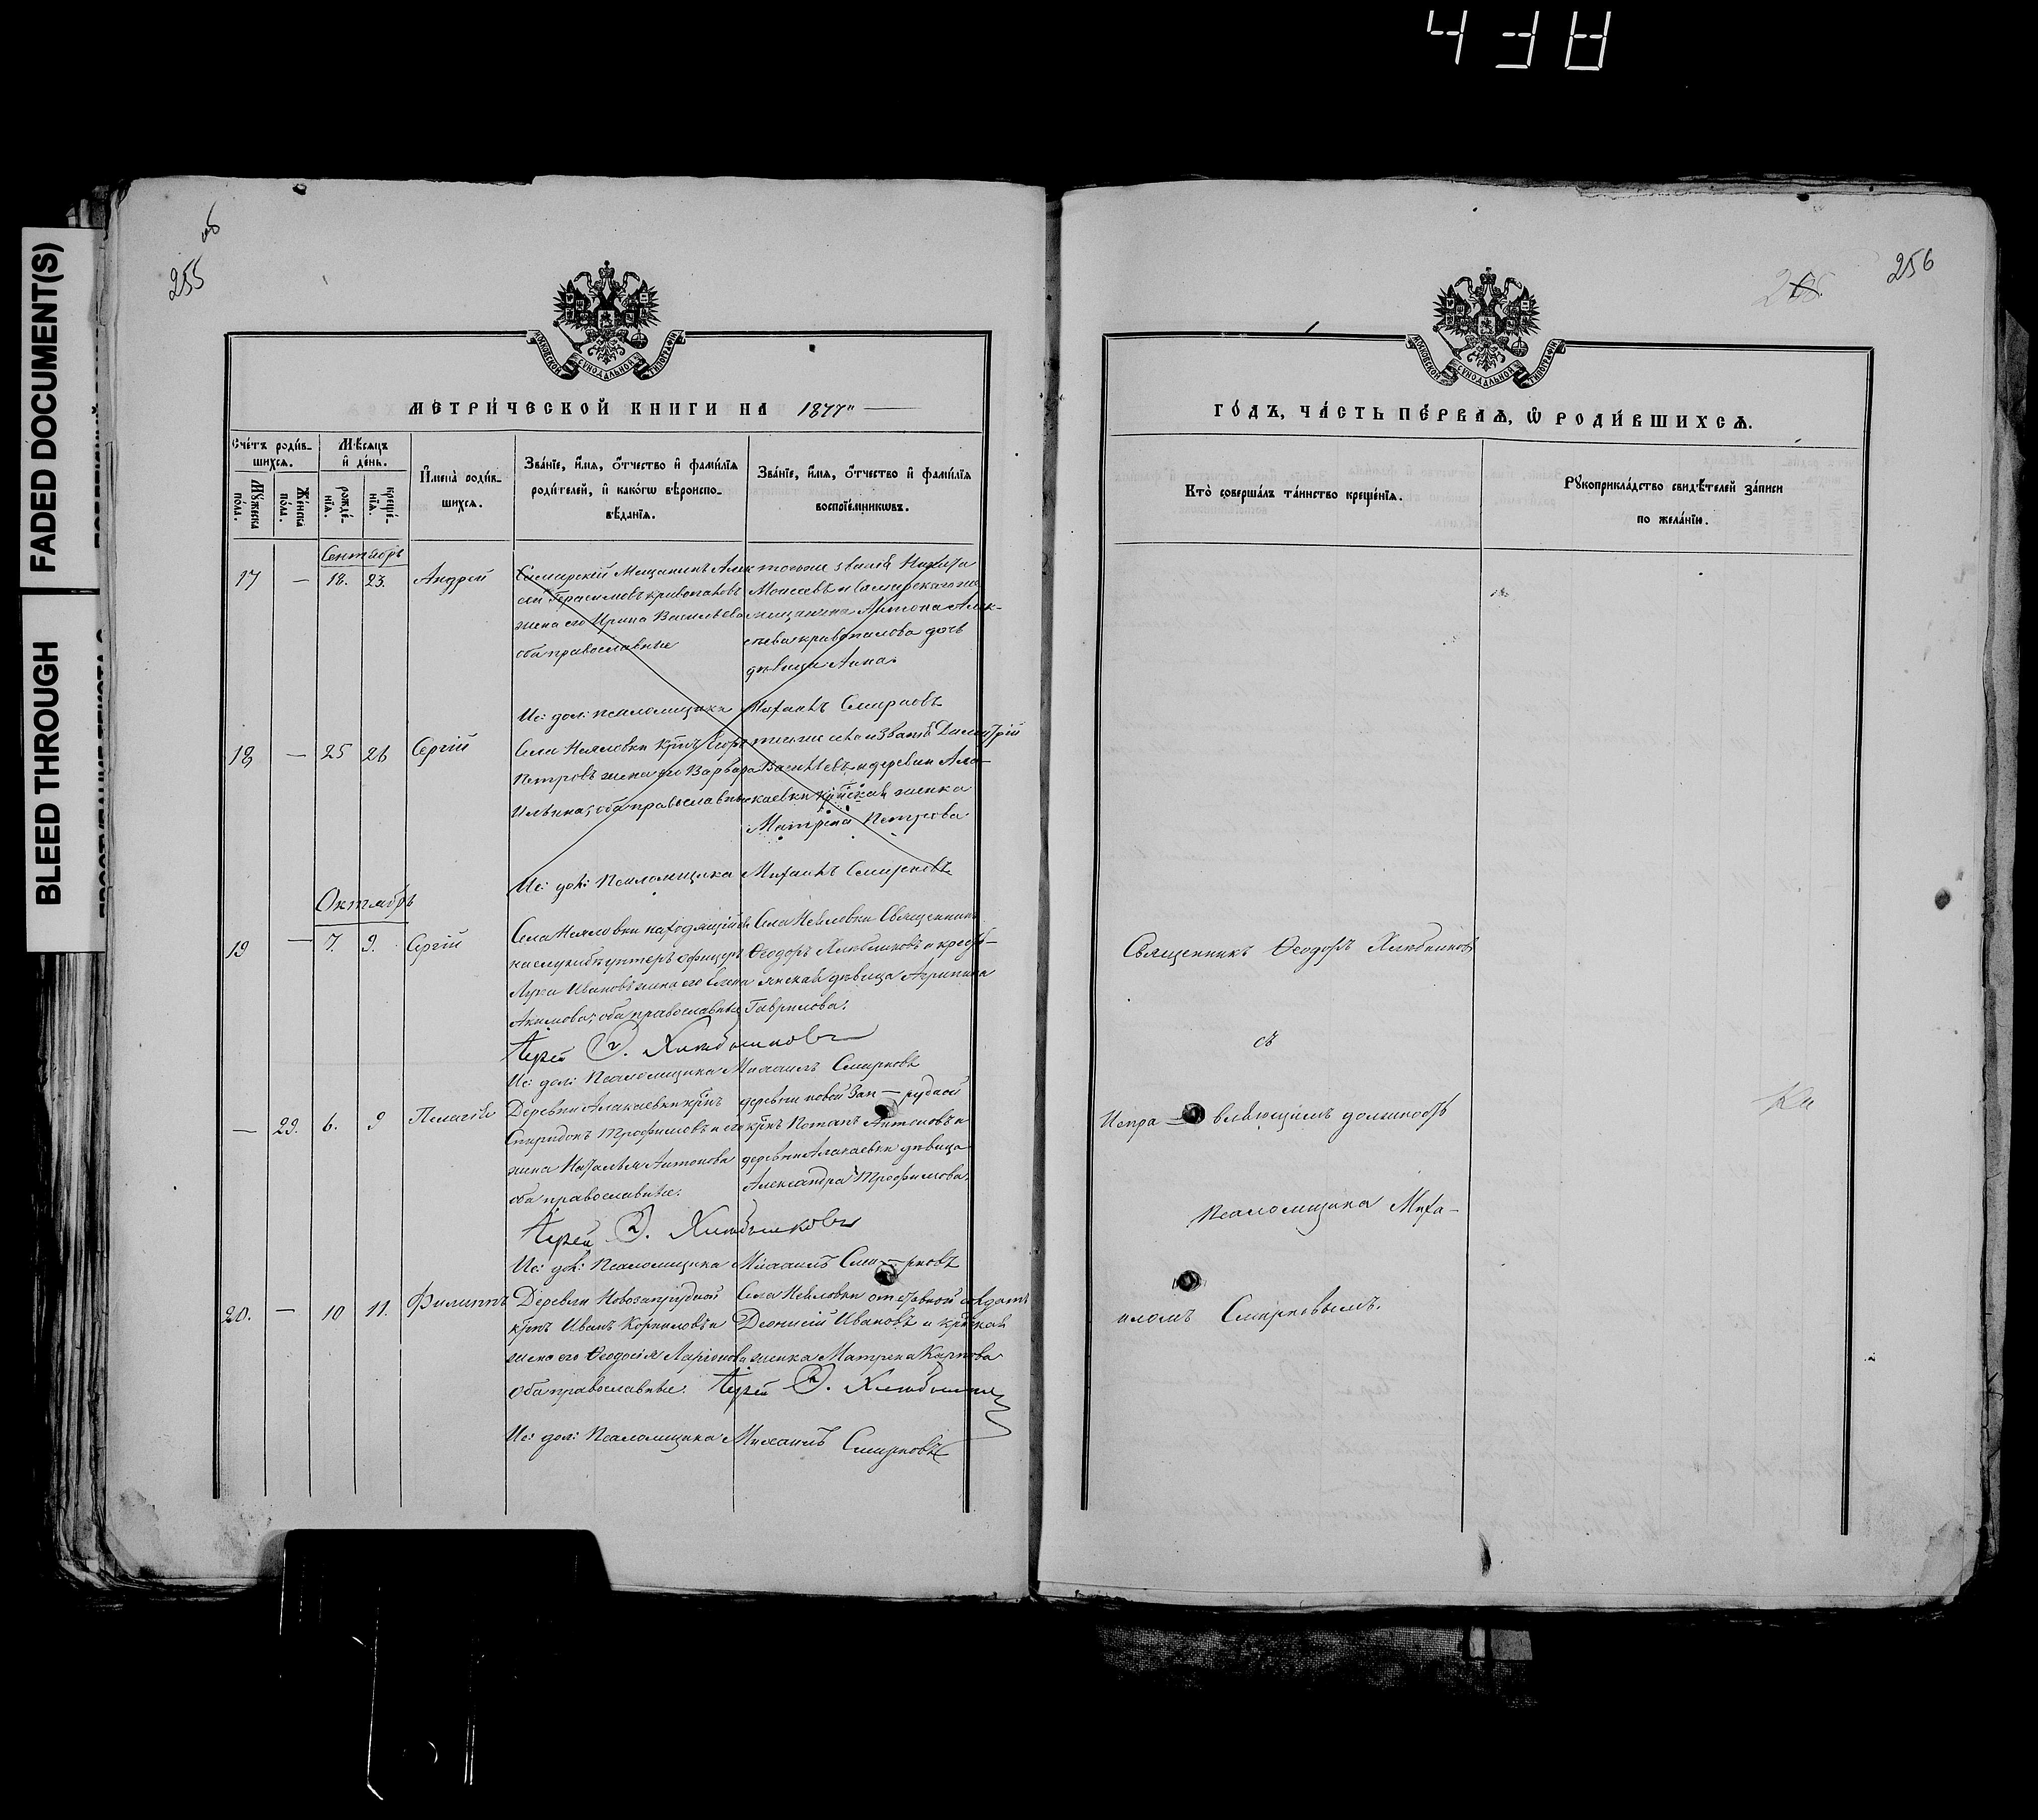 438
FADED DOCUMENT(S)
BLEED THROUGH
255
256
МОСКОВСКОЙ СѴНОДАЛЬНОЙ ТИПОГРАФІИ
МЕТРИ́ЧЕСКОЙ КНИГИ НА 1877
Сче́тъ роди́в-
шихся.
Мѣ́сяцъ
и҆ де́нь.
Мꙋ́жеска
по́ла.
Же́нска
по́ла.
рожде́-
нїя.
креще́-
нїя.
И҆мена̀ роди́в-
шихся.
Зва́нїе, и҆́мя, ѻ҆́тчество и҆ фамі́лїя
роди́телей, и҆ како́гѡ вѣроиспо-
вѣ́данїя.
Зва́нїе, и҆́мя, ѻ҆́тчество и҆ фамі́лїя
воспрїе́мникѡвъ.
Сентябрь
17 — 18. 23. Андрей
Самарскій Мещанинъ Алек
сѣй Герасимовъ Кривопаловъ
жена его Ирина Васильева
оба православные
тогоже званія Никита
Моисеевъ и самарскаго
мещанина Антона Алек-
сѣева Кривопалова дочь
дѣвица Анна.
Ис: дол: псаломщика Михаилъ Смирновъ
18 — 25 26 Сергій
Села Неяловки
Петровъ жена его Варвара
Ильина, оба православны
тогоже села и званія Димитрій
Васильевъ и деревни Ала-
каевки женка
Матрена Петрова
Ис: дол: Псаломщика Михаилъ Смирновъ
Октябрь
19 — 7. 9. Сергій
Села Неяловки находящійся
на службѣ унтеръ офицеръ
Лука Ивановъ жена его Елена
Акимова, оба православные
Села Неяловки Священникъ
Ѳеодоръ Хлѣбниковъ и кресть-
янская дѣвица Агрипина
Гаврилова.
Іерей Ѳ. Хлѣбниковъ
Ис: дол: Псаломщика Михаилъ Смирновъ
— 29. 6. 9 Пелагія
Деревни Алакаевки крнъ
Спиридонъ Трофимовъ и его
жена Наталья Антонова
оба православные.
деревни новой Зап — рудной
крнъ Потапъ Антоновъ и
деревни Алакаевки дѣвица
Александра Трофимова.
Іерей Ѳ. Хлѣбниковъ
Ис: дол: Псаломщика Михаилъ Сми — рновъ
20. — 10 11. Филиппъ
Деревни Новозапрудной
крнъ Иванъ Корниловъ и
жена его Ѳеодосія Ларіонова
оба православные.
Села Неяловки отставной солдатъ
Діонисій Ивановъ и
женка Матрена Карпова
Іерей Ѳ. Хлѣбников
Ис: дол: Псаломщика Михаилъ Смирновъ
ГО́ДЪ, ЧА́СТЬ ПЕ́РВАЯ, Ѡ҆ РОДИ́ВШИХСЯ.
Кто̀ соверша́лъ та́инство креще́нїя.
Рꙋкоприкла́дство свидѣ́телей за́писи
по жела́нїю.
Священникъ Ѳеодоръ Хлѣбниковъ
съ
Испра — вляющимъ должность
Псаломщика Миха-
иломъ Смирновымъ.